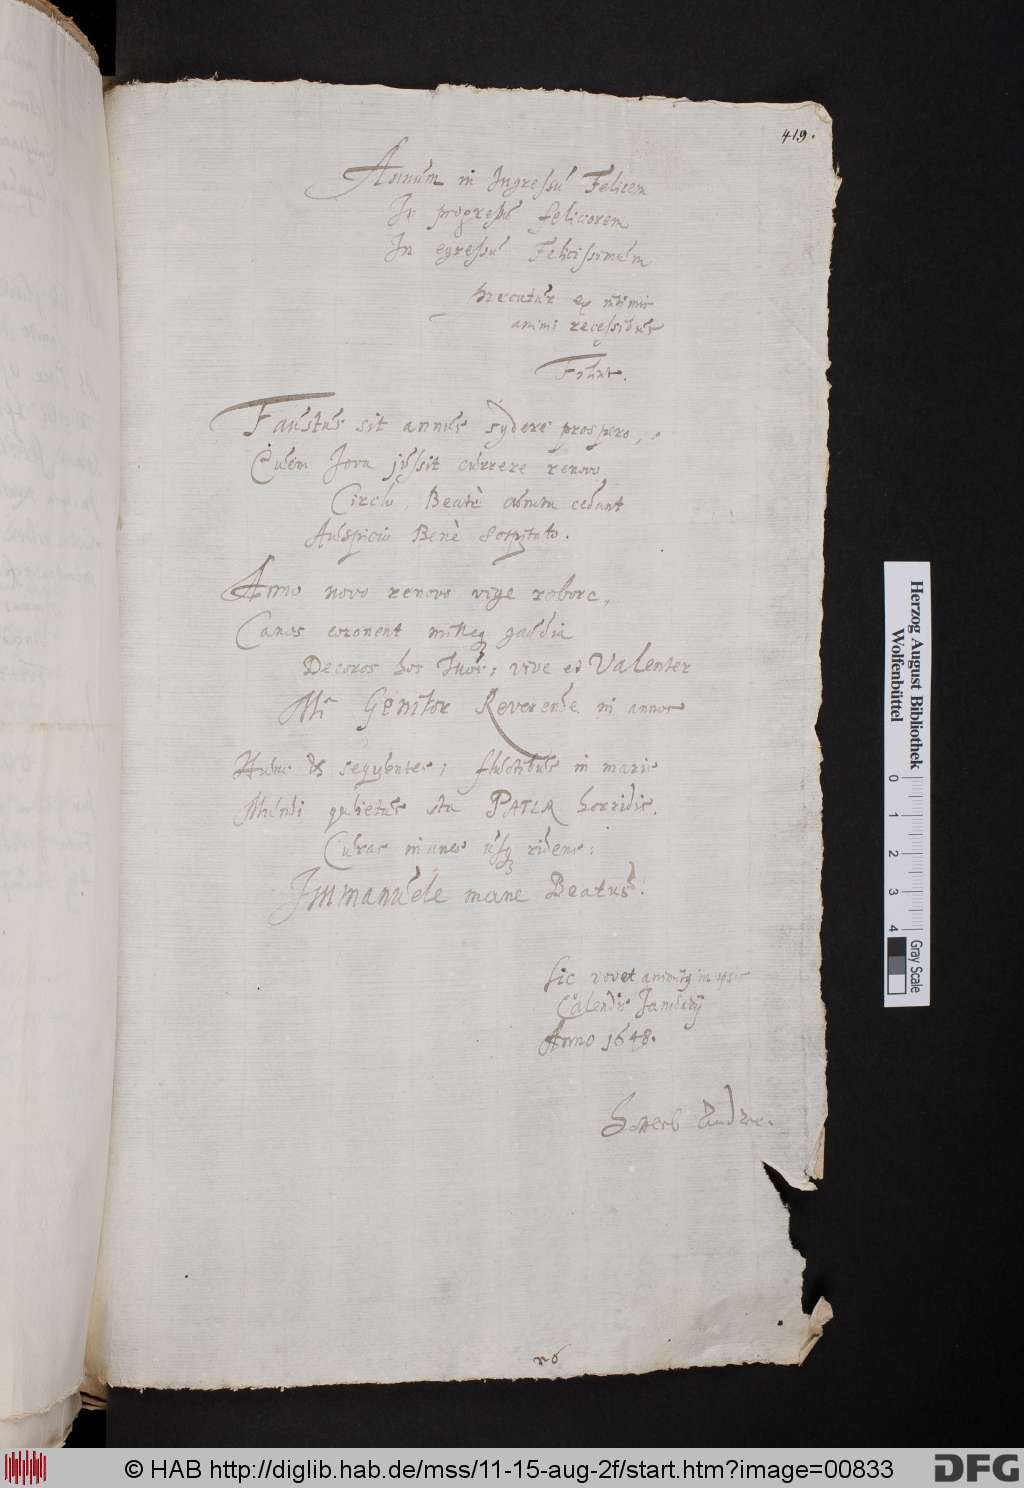 419.
Annum in Ingressu Felicem
In progressu feliciorem
In egressu Felicissimum
precatur ex intimis
animi recessibus
Faustus sit annus sydere prospero,
Quem Jova jussit currere renovo
Circlo, Beatè cedant
Auspicio Benè Sospitato.
Anno novo renovo vige robore,
Canos coronent milleq gaudia
Decoros hos tuos; vive et Valenter
Mi Genitor Reverende in annos
Hunc & sequentes; fluctibus in maris
Mundi quietus sta PATER horridis.
Curas inanes usq ridens:
Immanuele mane Beatus.
Sic vovet in ipsis
Calendis Januarij
Anno 1648.
Herzog August Bibliothek
Wolfenbüttel
0 1 2 3 4
Gray Scale
© HAB http://diglib.hab.de/mss/11-15-aug-2f/start.htm?image=00833
DFG